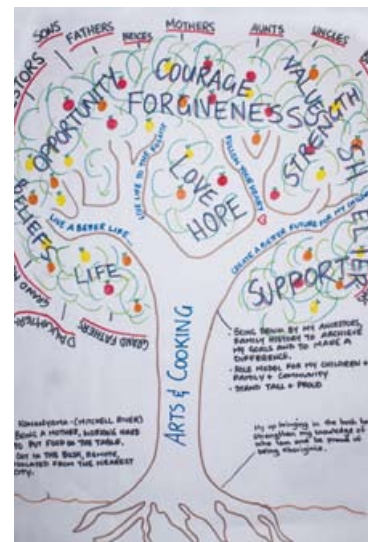 SONS
FATHERS
NEICES
MOTHERS
AUNTS
UNCLES
OPPORTUNITY
COURAGE
FORGIVENESS
VALUES
STRENGTH
BELIEFS
LIVE A BETTER LIFE...
LIVE LIFE TO THE FULLEST
FOLLOW YOUR HEART
LOVE
HOPE
CREATE A BETTER FUTURE FOR MY
LIFE
SUPPORT
GRAND FATHERS
ARTS & COOKING
- BEING DRIVEN BY MY ANCESTORS,
FAMILY HISTORY TO ARCHIEVE
MY GOALS AND TO MAKE A
DIFFERENCE.
- ROLE MODEL FOR MY CHILDREN +
FAMILY & COMMUNITY
- STAND TALL & PROUD
(MITCHELL RIVER)
BEING A MOTHER, WORKING HARD
TO PUT FOOD ON THE TABLE.
OUT IN THE BUSH, REMOTE,
ISOLATED FROM THE NEAREST
CITY.
My up bringing in the bush has
strengthen my knowledge of
who I am and be proud of
being Aborigine.